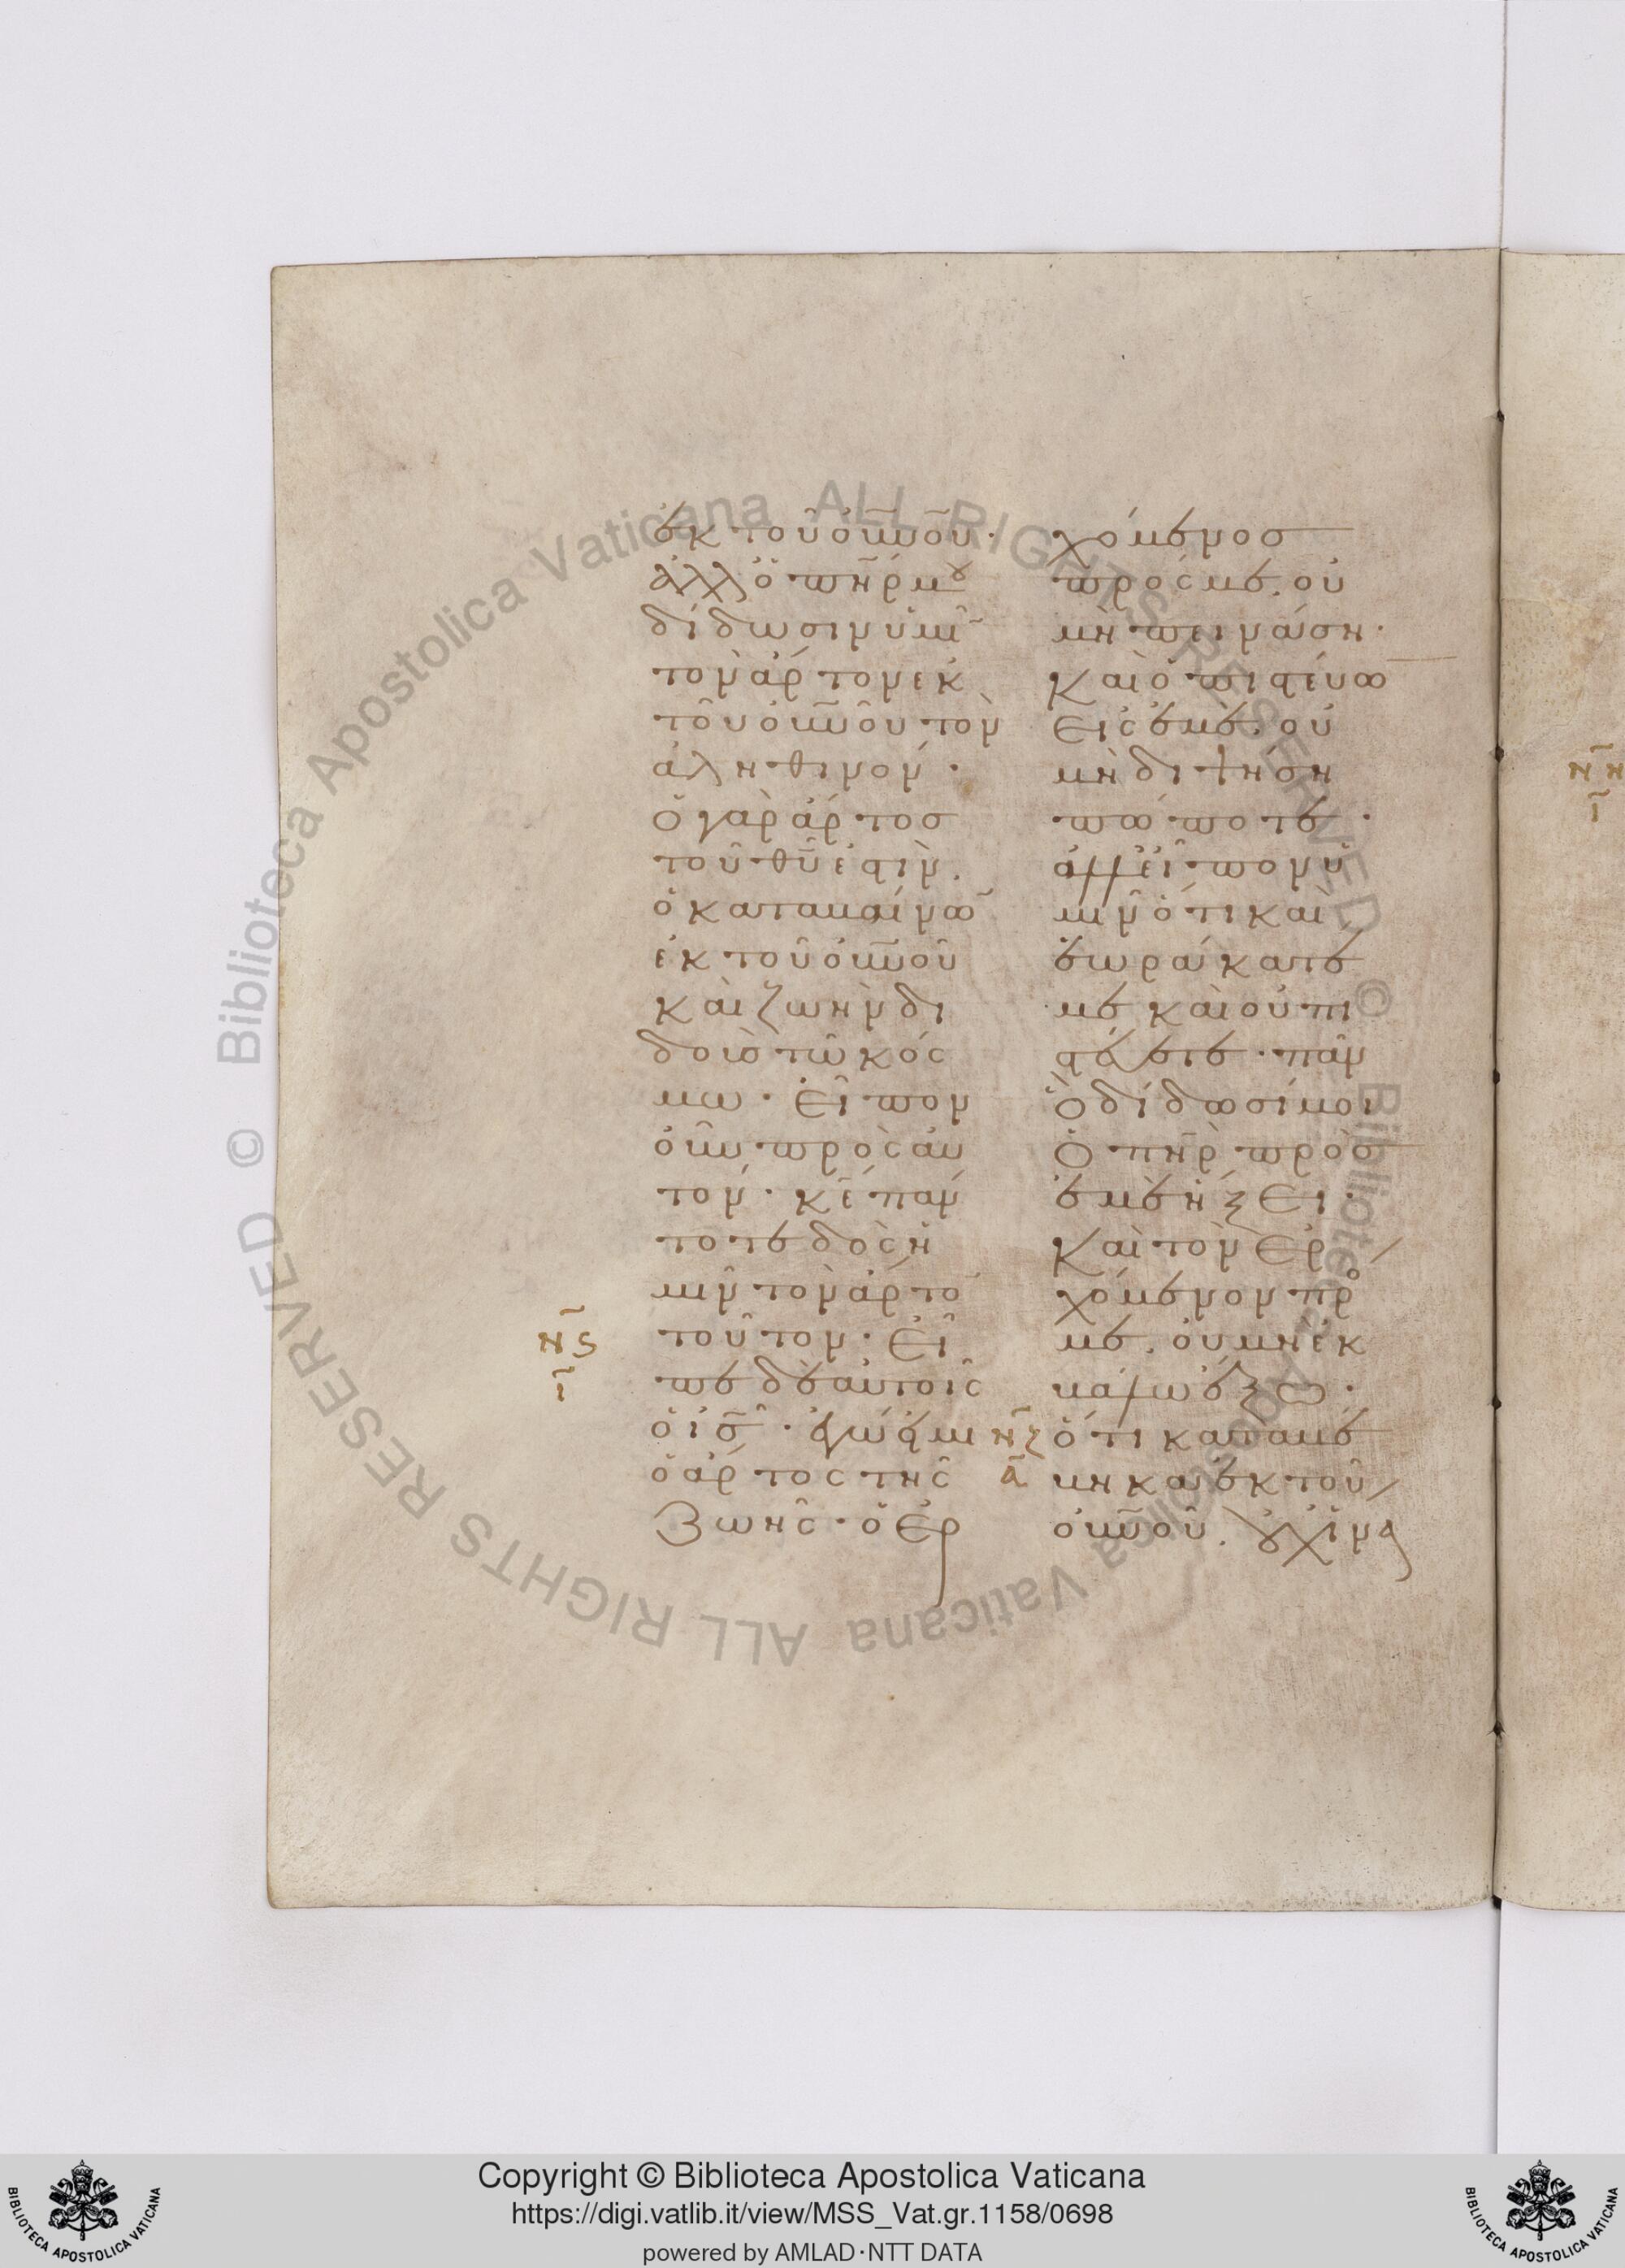 ἐκ τοῦ οὐ̅νοῦ·
ἀλλ ὁ πη̅ρ μου
δίδωσιν ὑμῖ̅
τὸν ἄρτον ἐκ
τοῦ οὐ̅νοῦ τὸν
ἀληθινόν·
Ὁ γὰρ ἄρτοσ
τοῦ θυ̅ ἐστὶν.
ὁ καταβαίνω̅
ἐκ τοῦ οὐ̅νοῦ
καὶ ζωὴν δι
δοὺσ τῶ κόσ
μω· Εἶπον
οὖν πρὸς αὐ
τόν· κε̅ πάν
τοτε δὸς ἡ
μῖν τὸν ἄρτο̅
τοῦτον· Εἶ
πε δὲ αὐτοῖς
ὁ ις̅· ἐγώ εἰμι
ὁ ἄρτος τῆς
Ζωῆς· ὁ ἐρ
χόμενοσ
πρός με. οὐ
μὴ πεινάση·
Καὶ ὁ πιστεύω
Εἰς ἐμὲ. οὐ
μὴ διψήση
πώποτε·
ἀλλ εἶπον ὑ
μῖν ὅτι καὶ
ἑωράκατε
με καὶ οὐ πι
στεύετε· πᾶν
Ὃ δίδωσί μοι
Ὁ πη̅ρ πρὸσ
ἐμὲ ἥξει·
Καὶ τὸν ἐρ
χόμενον πρὸ
με. οὐ μὴ ἐκ
βάλω ἔξω·
ὅτι καταβέ
βηκα ἐκ τοῦ
οὐ̅νοῦ. οὐχ ἵνα
νς̅
ι̅
νζ̅
α̅
νη̅
ι̅
Copyright © Biblioteca Apostolica Vaticana
https://digi.vatlib.it/view/MSS_Vat.gr.1158/0698
powered by AMLAD·NTT DATA
BIBLIOTECA APOSTOLICA VATICANA
BIBLIOTECA APOSTOLICA VATICANA
© Biblioteca Apostolica Vaticana ALL RIGHTS RESERVED © Biblioteca Apostolica Vaticana ALL RIGHTS RESERVED